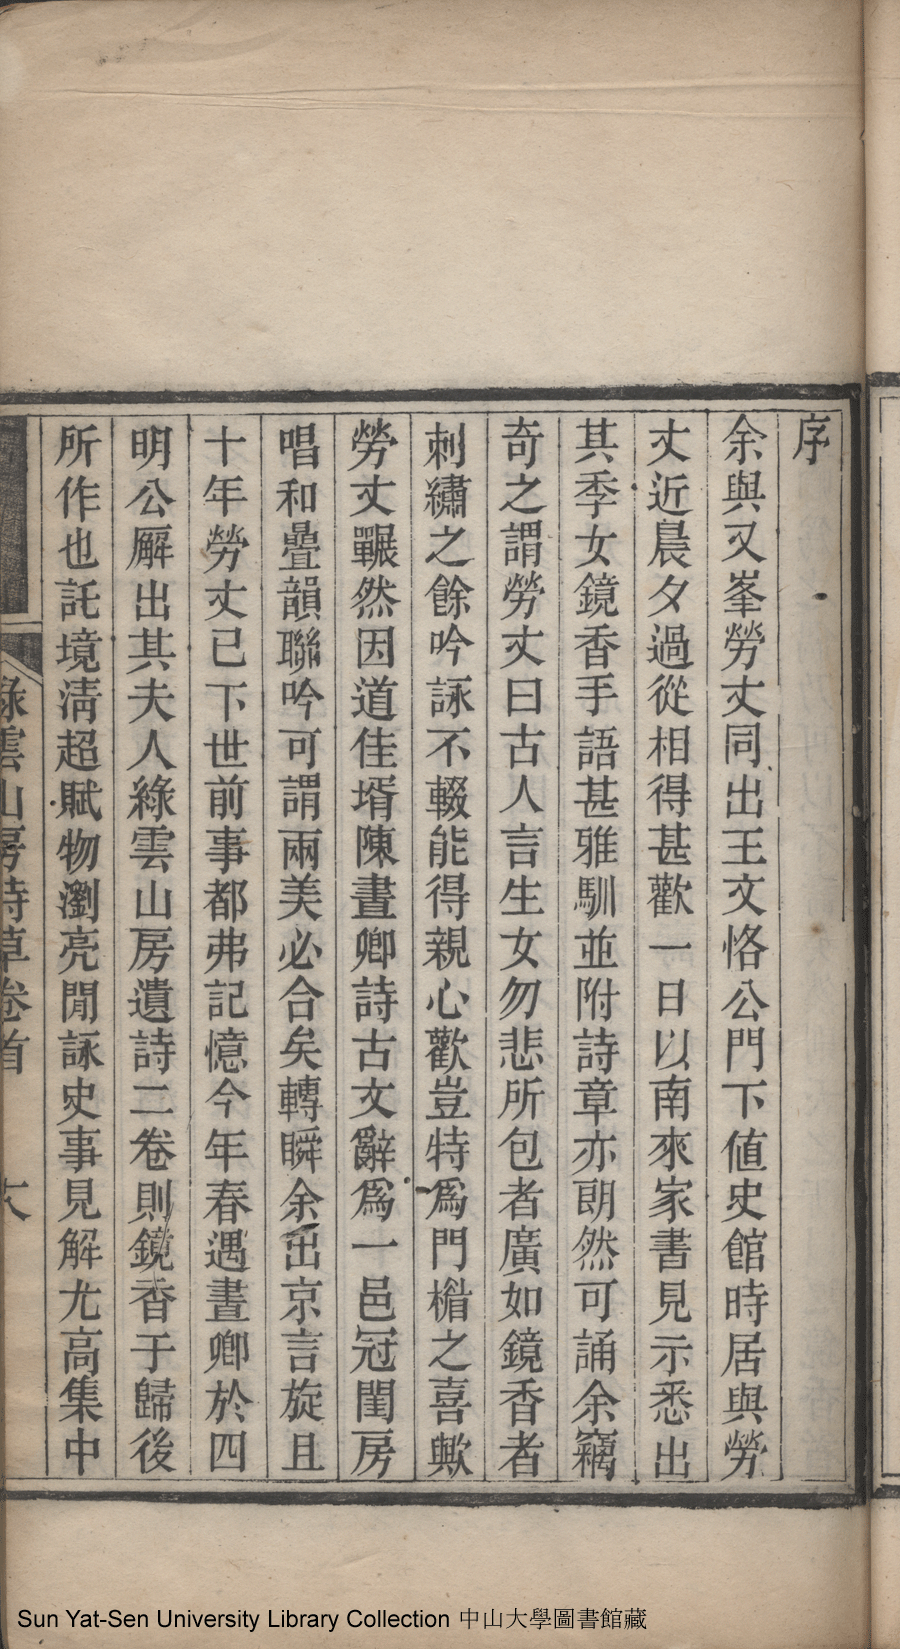 序
余與又峯勞丈同出王文恪公門下値史館時居與勞
丈近晨夕過從相得甚歡一日以南來家書見示悉出
其季女鏡香手語甚雅馴並附詩章亦朗然可誦余竊
奇之謂勞丈曰古人言生女勿悲所包者廣如鏡香者
刺繡之餘吟詠不輟能得親心歡豈特爲門楣之喜歟
勞丈囅然因道佳壻陳晝卿詩古文辭爲一邑冠閨房
唱和疊韻聯吟可謂兩美必合矣轉瞬余出京言旋且
十年勞丈已下世前事都弗記憶今年春遇晝卿於四
明公廨出其夫人綠雲山房遺詩二卷則鏡香于歸後
所作也託境淸超賦物瀏亮閒詠史事見解尤高集中
綠雲山房詩草卷首
Sun Yat-Sen University Library Collection 中山大學圖書館藏